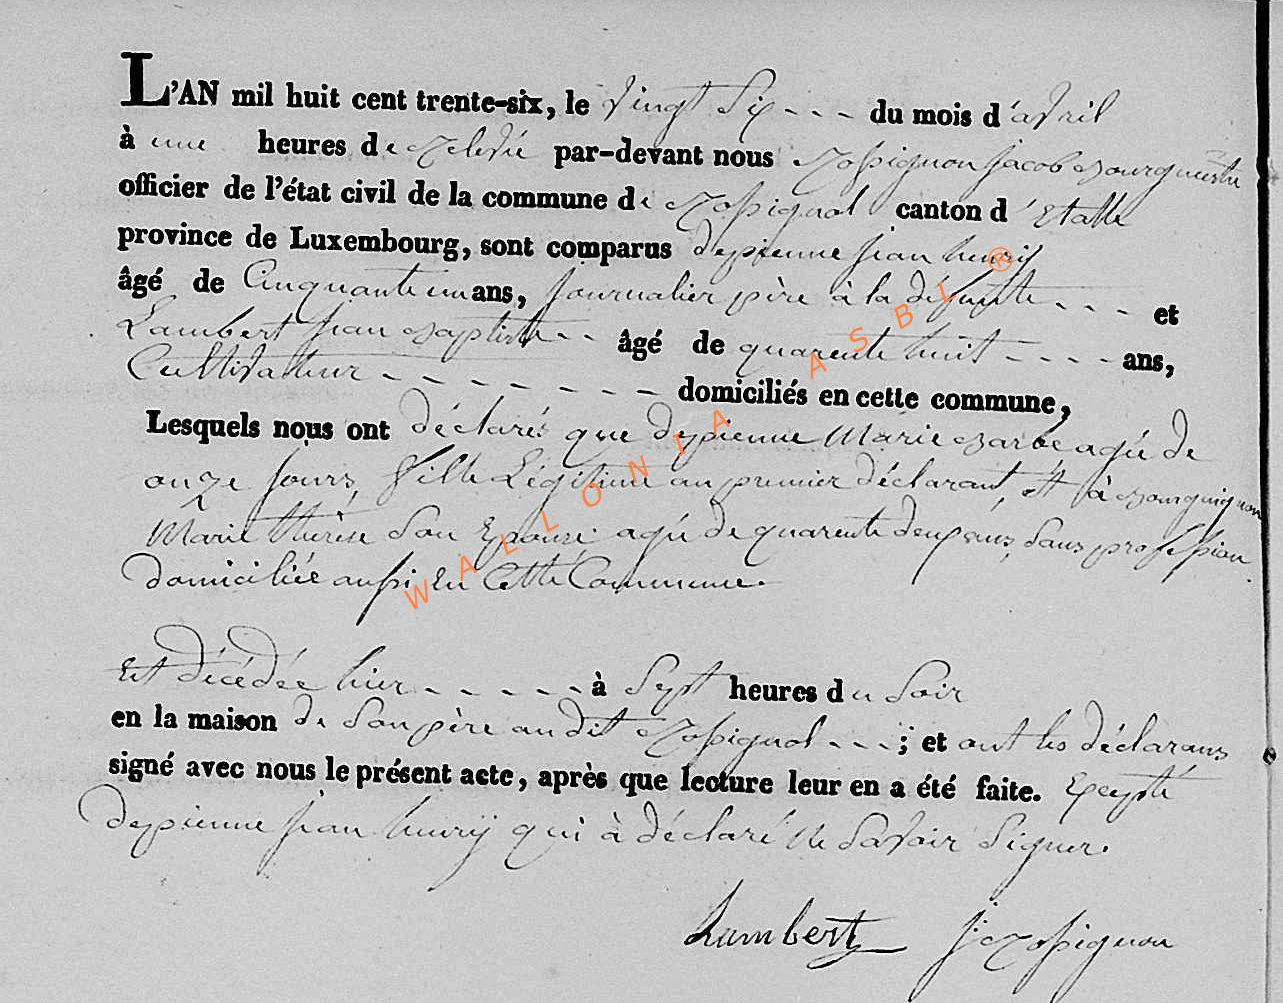 L'AN mil huit cent trente-six, le vingt Six - - - du mois d'avril
à une heures de relevée par-devant nous Rossignon jacob bourgmestre
officier de l'état civil de la commune de Rossignol canton d'Etalle
province de Luxembourg, sont comparus depienne jean henrij
âgé de Cinquante un ans, journalier père à la défunte - - - et
Lambert jean baptiste - - âgé de quarente huit - - - - ans,
Cultivateur - - - - - - - - domiciliés en cette commune,
Lesquels nous ont déclarés que depienne Marie barbe agée de
onze jours, fille Légitime au premier déclarant, et à bourguignon
Marie thérèse Son Epouse agée de quarente deux ans, Sans profession
domiciliée aussi En Cette Commune.
Est décédée hier - - - - - à Sept heures du Soir
en la maison de Son père au dit Rossignol - - - ; et ont les déclarans
signé avec nous le présent acte, après que lecture leur en a été faite. Excepté
depienne jean henrij qui à déclaré Ne Savoir Signer.
Lambert j: Rossignon
WALLONIA ASBL ®